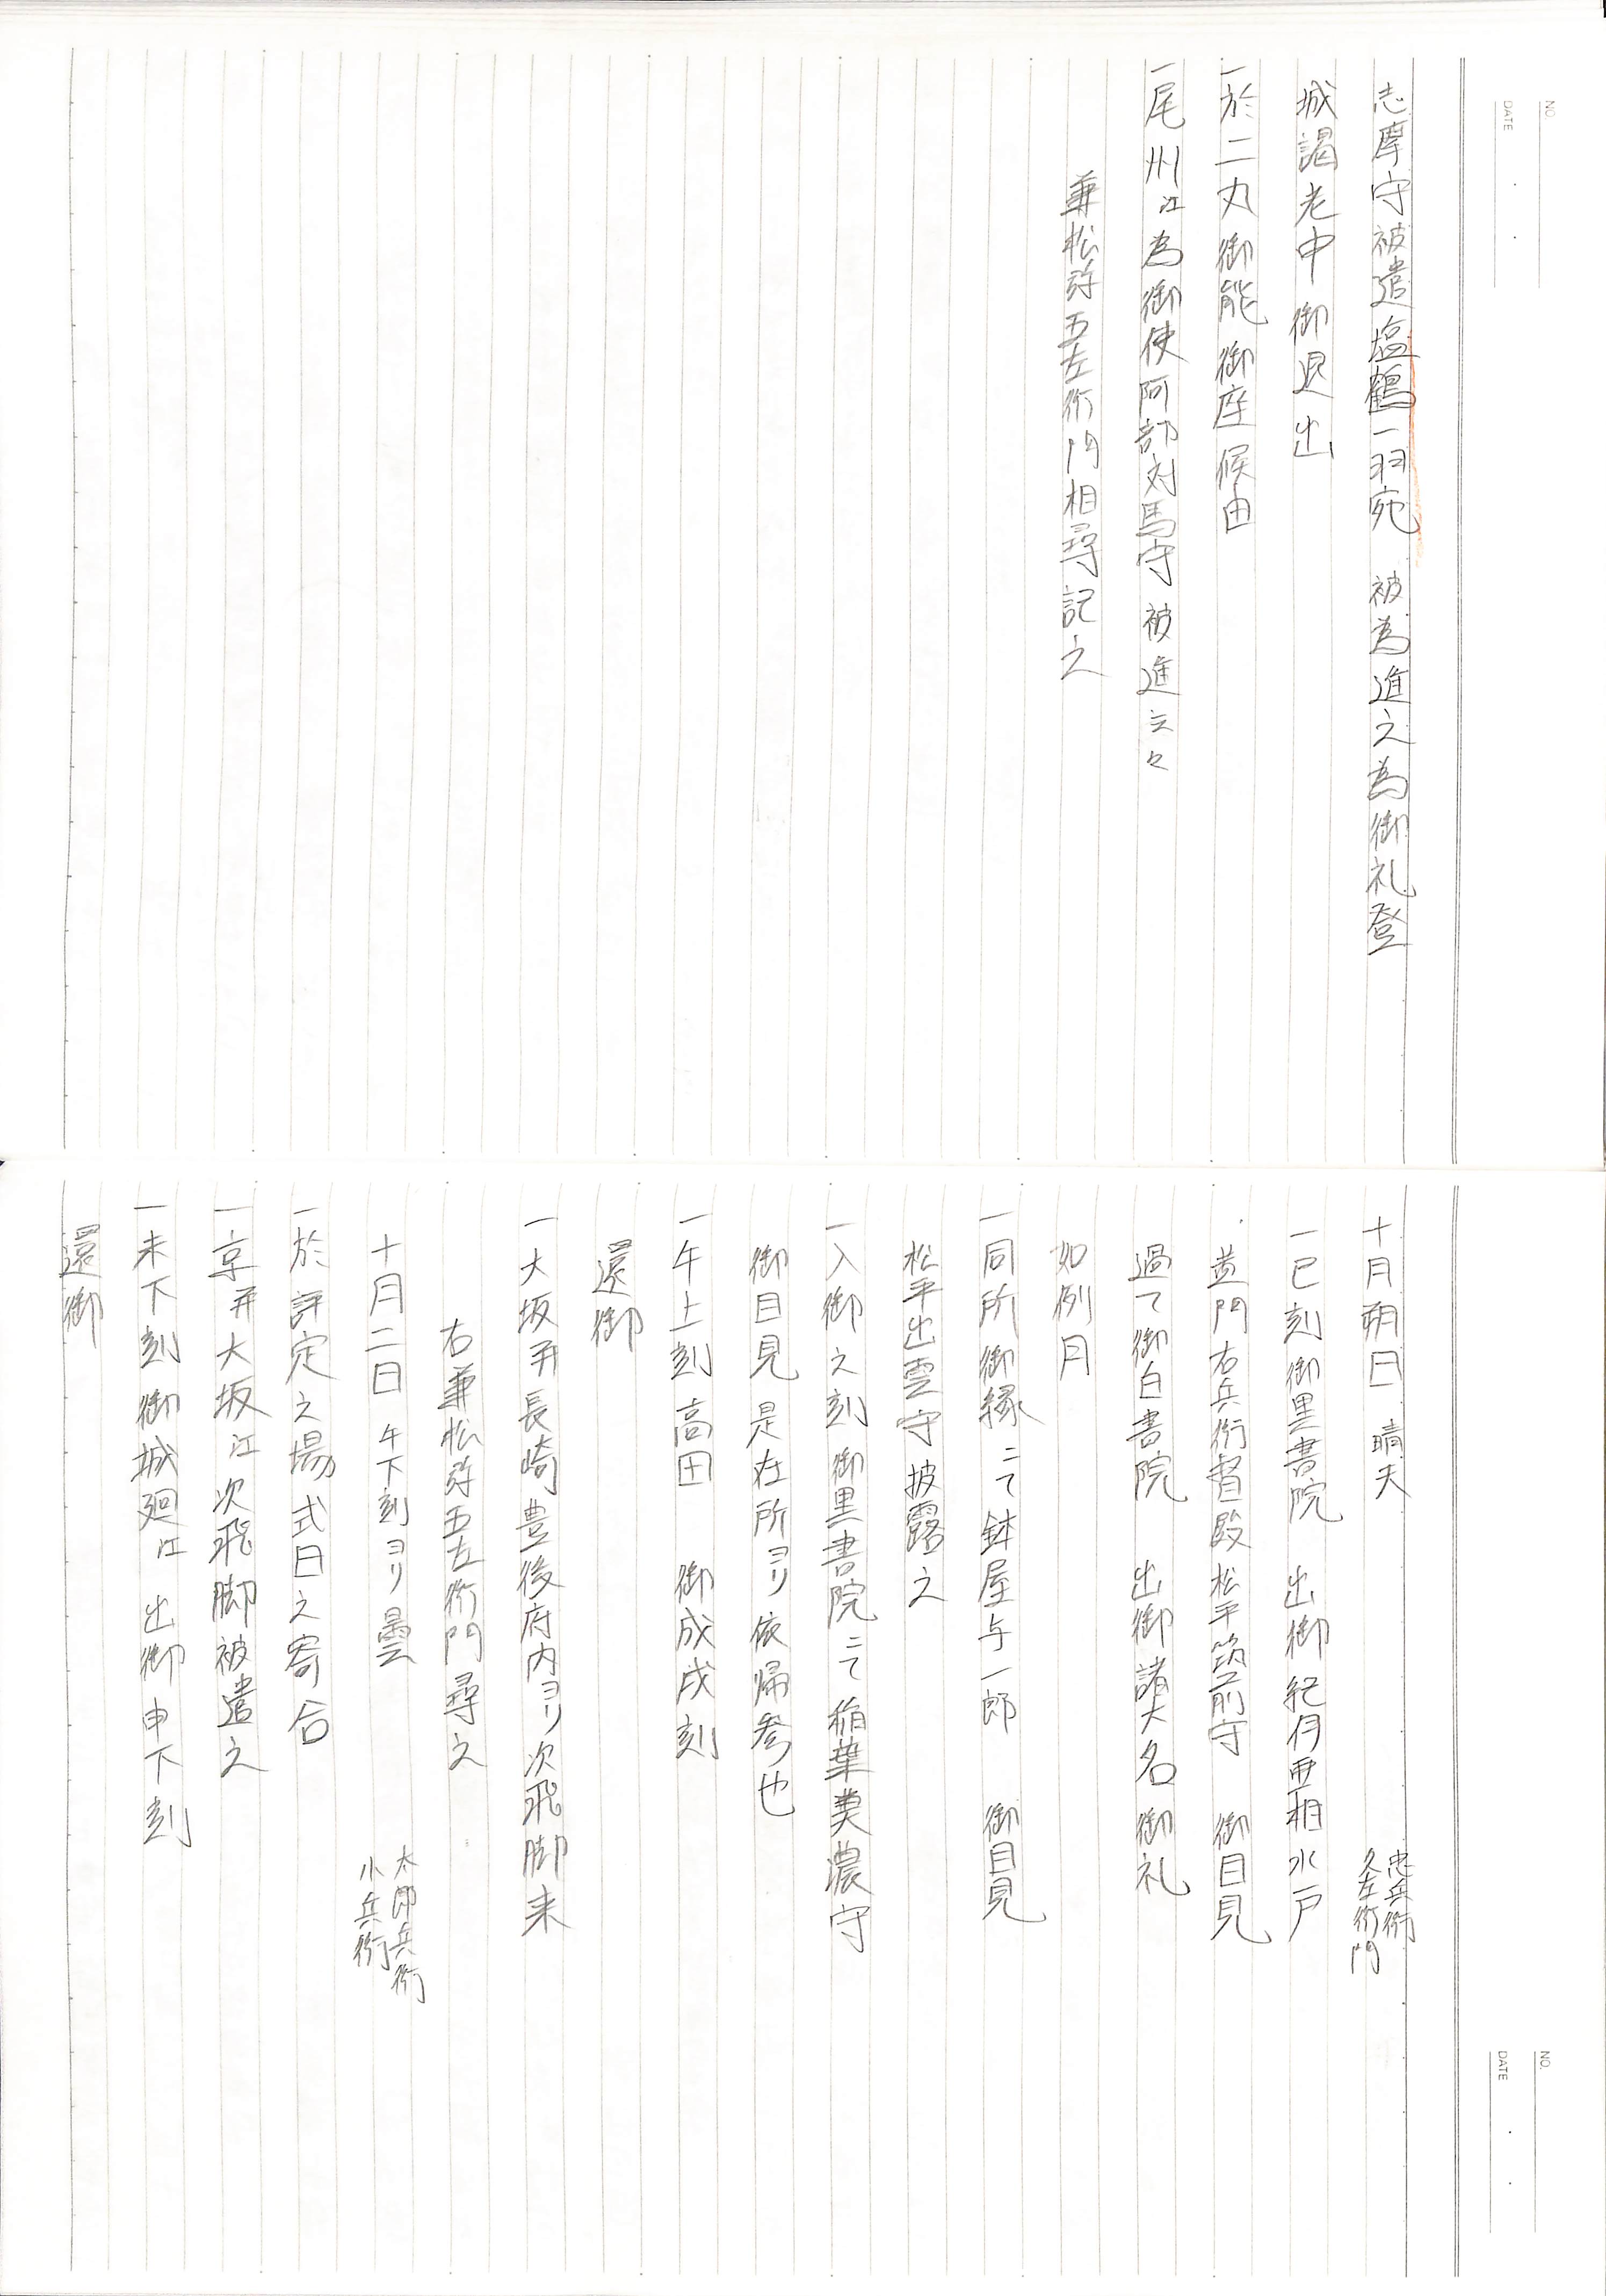 NO.
DATE
志摩守被遣塩鶴一羽宛 被為進之為御礼登
城謁老中御退出
一於二丸御能御座候由
一尾州江為御使阿部対馬守被進云々
兼松弥五左衛門相尋記之
NO.
DATE
十月朔日 晴天 忠兵衛 久左衛門
一巳刻御黒書院 出御紀伊亜相水戸
黄門右兵衛督殿松平筑前守 御目見
過て御白書院 出御諸大名御礼
如例月
一同所御縁ニて鉢屋与一郎 御目見
松平出雲守披露之
一入御之刻御黒書院ニて稲葉美濃守
御目見是在所ヨリ依帰参也
一午上刻高田 御成戌刻
還御
一大坂并長崎豊後府内ヨリ次飛脚来
右兼松弥五左衛門尋之
十月二日 午下刻ヨリ曇 太郎兵衛 小兵衛
一於評定之場式日之寄合
一京并大坂江次飛脚被遣之
一未下刻御城廻江 出御申下刻
還御